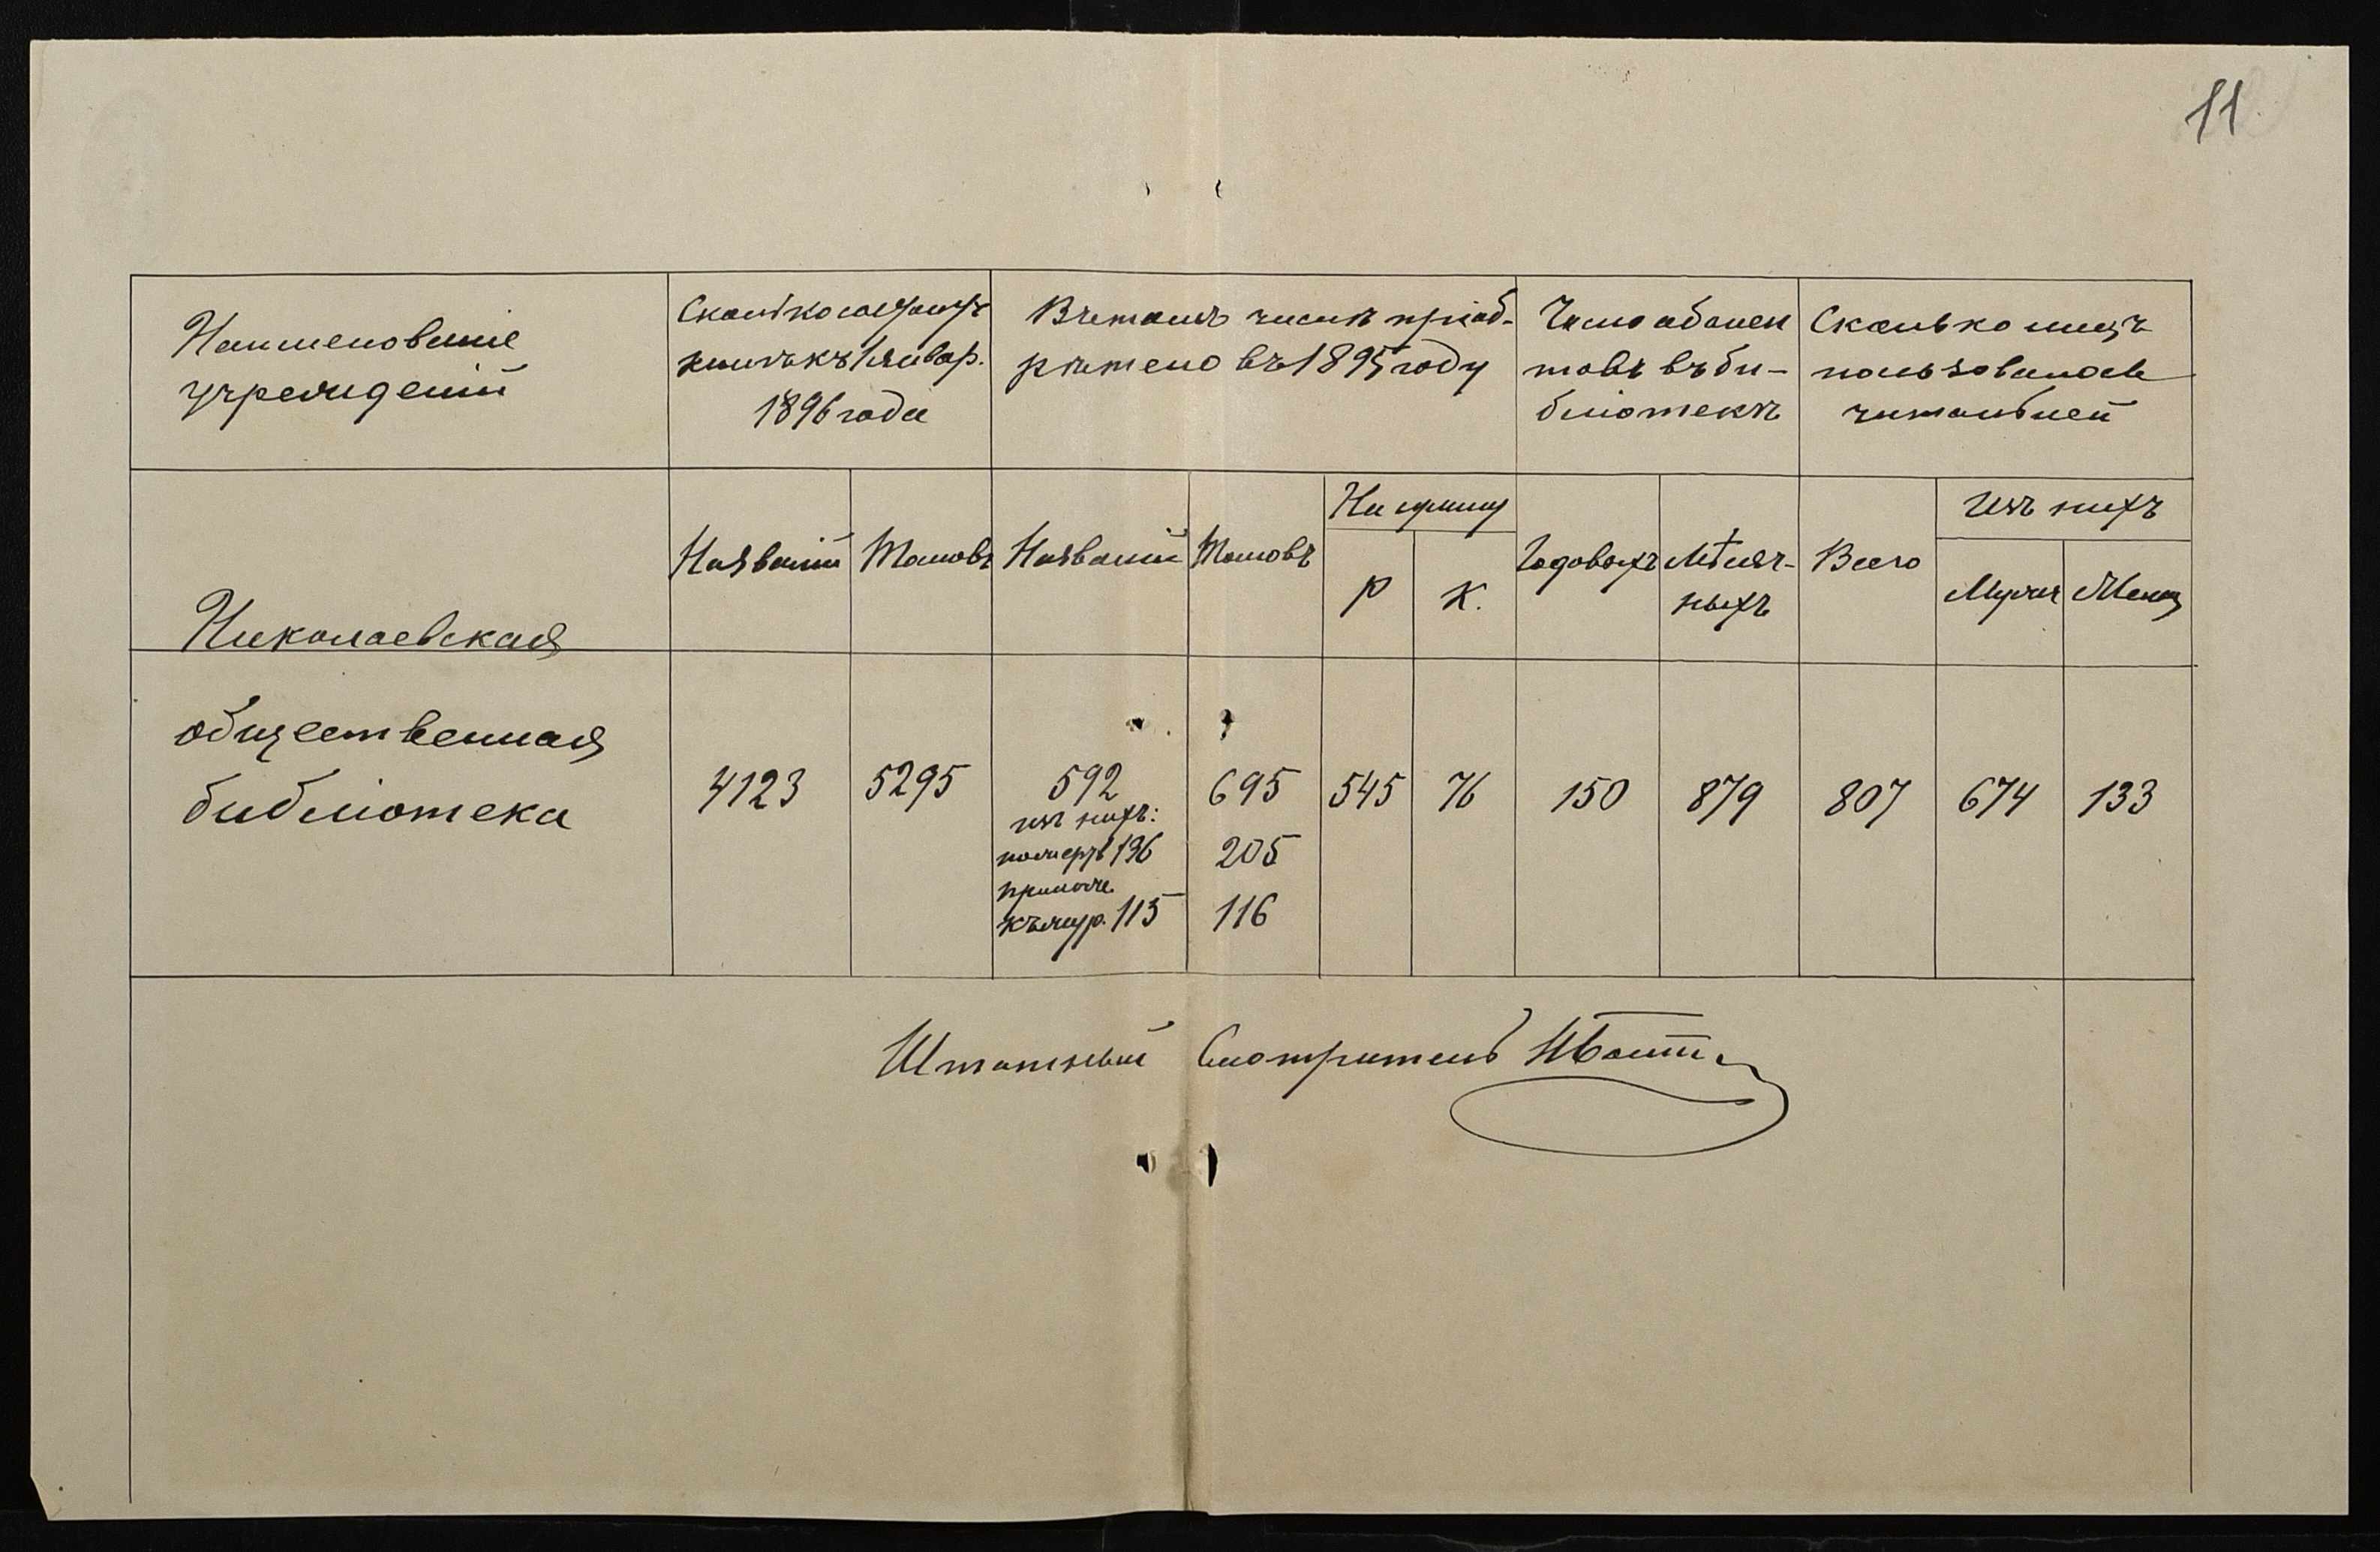 11
Наименованіе
учрежденій
Сколько состоитъ
книгъ къ 1 январ.
1896 года
Въ томъ числѣ пріоб-
рѣтено въ 1895 году
Число абонен
товъ въ би-
бліотекѣ
Сколько лицъ
пользовалось
читальней
Названій
Томовъ
Названій
Томовъ
На сумму
Р
К.
Годовыхъ
Мѣсяч-
ныхъ
Всего
Изъ нихъ
Мужч
Женщ
Николаевская
общественная
библіотека
4123
5295
592
изъ нихъ:
пожертв 196
прилож.
къ жур. 115
695
205
116
545
76
150
879
807
674
133
Штатный Смотритель